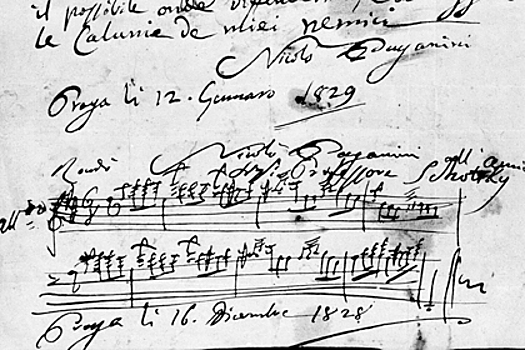 il possibile onde
le Calunie de miei nemici
Nicolò Paganini
Praga li 12. Gennaro 1829
Rondò Nicolò Paganini
all' Amico
Professore Schottky
all.tto
Praga li 16. Dicembre 1828